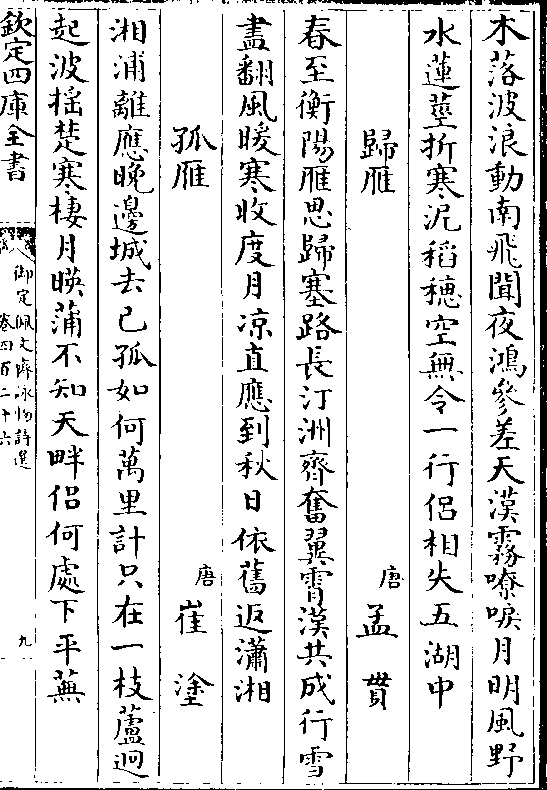 木落波浪動南飛聞夜鴻參差天漢霧嘹唳月明風野
水蓮莖折寒泥稻穗空無令一行侶相失五湖中
歸雁
唐 孟貫
春至衡陽雁思歸塞路長汀洲齊奮翼霄漢共成行雪
盡翻風暖寒收度月凉直應到秋日依舊返瀟湘
孤雁
唐 崔塗
湘浦離應晚邊城去已孤如何萬里計只在一枝蘆迥
起波揺楚寒棲月暎蒲不知天畔侶何處下平蕪
欽定四庫全書
御定佩文齋詠物詩選
卷四百二十六
九